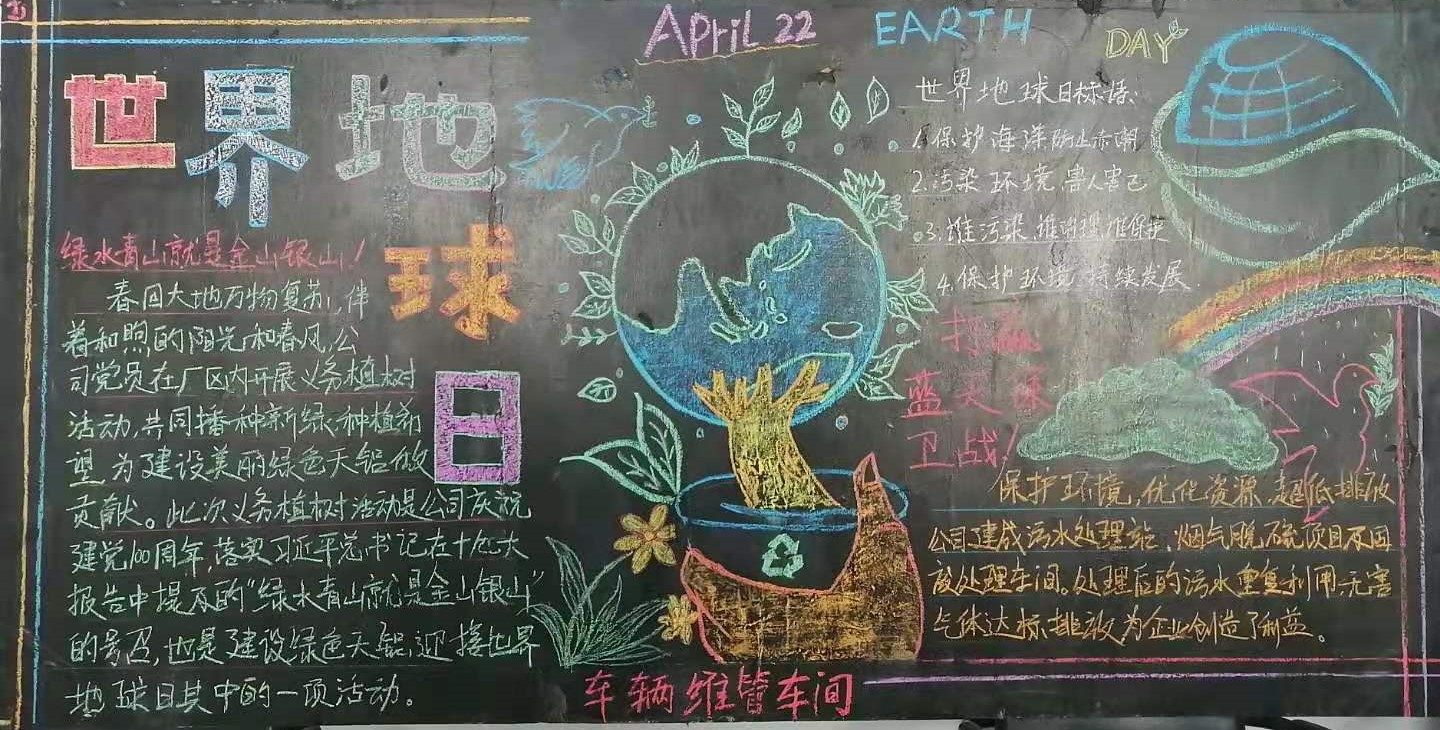 April 22 EARTH DAY
世界地
球
日
绿水青山就是金山银山！
春回大地万物复苏，伴
着和煦的阳光和春风，公
司党员在厂区内开展义务植树
活动，共同播种新绿、种植希
望，为建设美丽绿色天铝做
贡献。此次义务植树活动是公司庆祝
建党100周年，落实习近平总书记在十九大
报告中提及的“绿水青山就是金山银山”
的号召，也是建设绿色天铝，迎接世界
地球日其中的一项活动。
世界地球日标语：
1.保护海洋防止赤潮
2.污染环境，害人害己
3.谁污染，谁治理，谁保护
4.保护环境，持续发展
打赢
蓝天保
卫战！
保护环境，优化资源，超低排放
公司建成污水处理站、烟气脱硫项目
处理车间。处理后的污水重复利用，无害
气体达标排放为企业创造了利益。
车辆维管车间